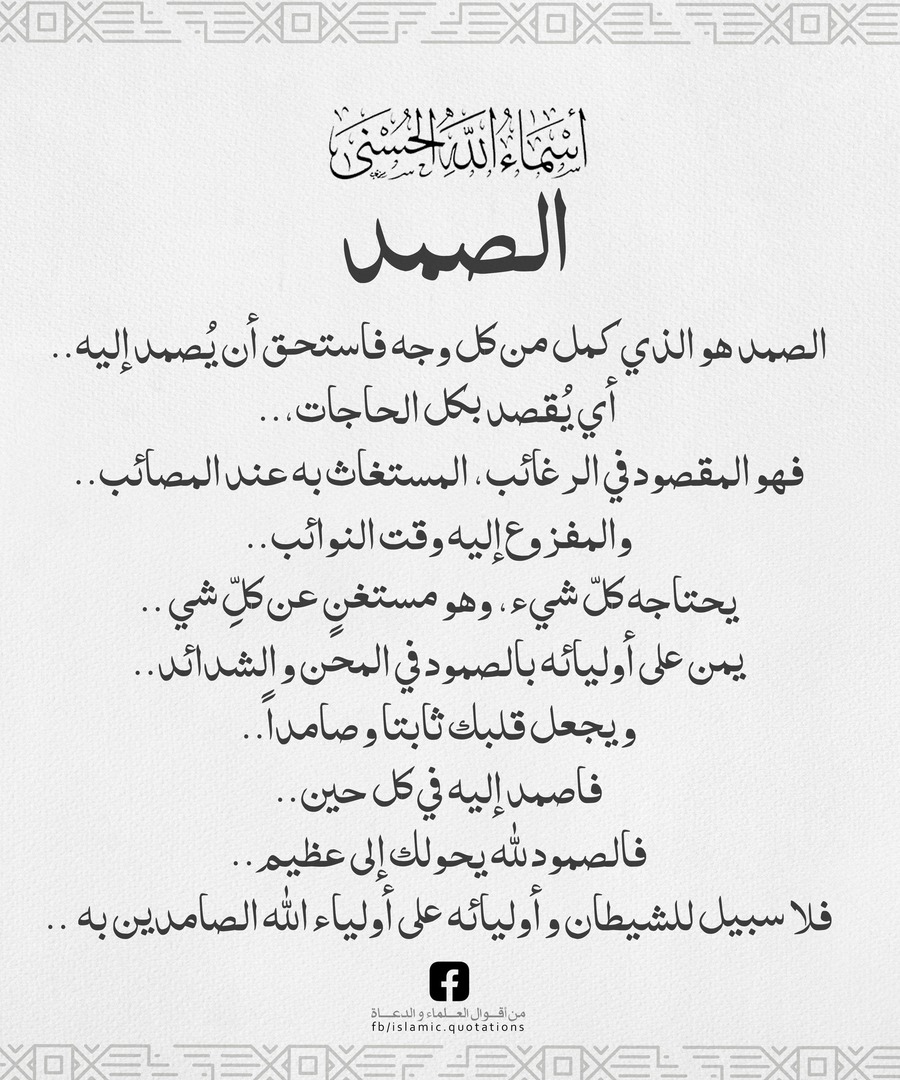 أَسْمَاءُ اللَّهِ الحُسْنَى
الصمد
الصمد هو الذي كمل من كل وجه فاستحق أن يُصمد إليه..
أي يُقصد بكل الحاجات،..
فهو المقصود في الرغائب، المستغاث به عند المصائب..
والمفزوع إليه وقت النوائب..
يحتاجه كلّ شيء، وهو مستغنٍ عن كلِّ شي..
يمن على أوليائه بالصمود في المحن و الشدائد..
و يجعل قلبك ثابتا و صامداً..
فاصمد إليه في كل حين..
فالصمود لله يحولك إلى عظيم..
فلا سبيل للشيطان و أوليائه على أولياء الله الصامدين به ..
من أقـوال العـلـماء و الدعـاة
fb/islamic.quotations